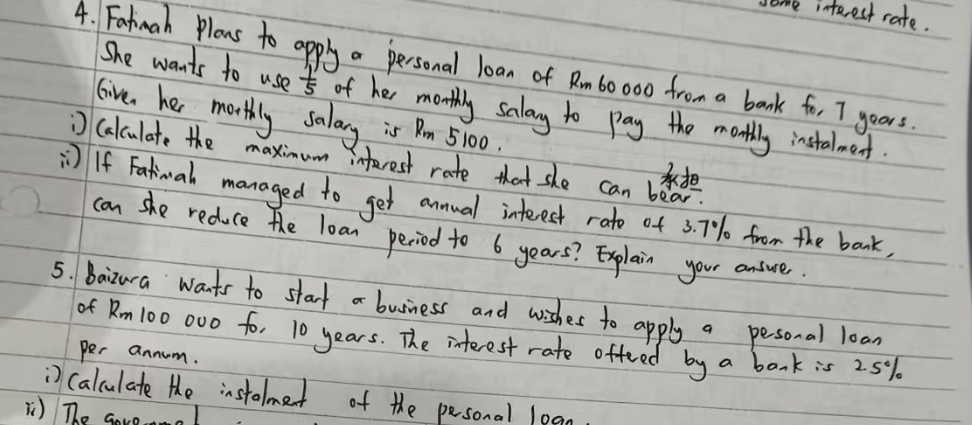 some interest rate.
4. Fatimah plans to apply a personal loan of Rm 60 000 from a bank for 7 years.
She wants to use 1/5 of her monthly salary to pay the monthly instalment.
Given her monthly salary is Rm 5100.
i) Calculate the maximum interest rate that she can bear.
承担
ii) If Fatimah managed to get annual interest rate of 3.7% from the bank,
can she reduce the loan period to 6 years? Explain your answer.
5. Baizura wants to start a business and wishes to apply a pesonal loan
of Rm 100 000 for 10 years. The interest rate offered by a bank is 2.5%
per annum.
i) Calculate the instalment of the personal loan.
ii) The